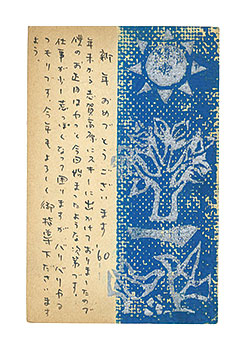 新年おめでとうございます
60
年末から志賀高原にスキーに出かけておりましたので
僕のお正月はやっと今日始まったような次第です。
仕事が少し荒っぽくなって困りますが、バリバリやる
つもりです。今年もよろしく御指導下さいます
よう。